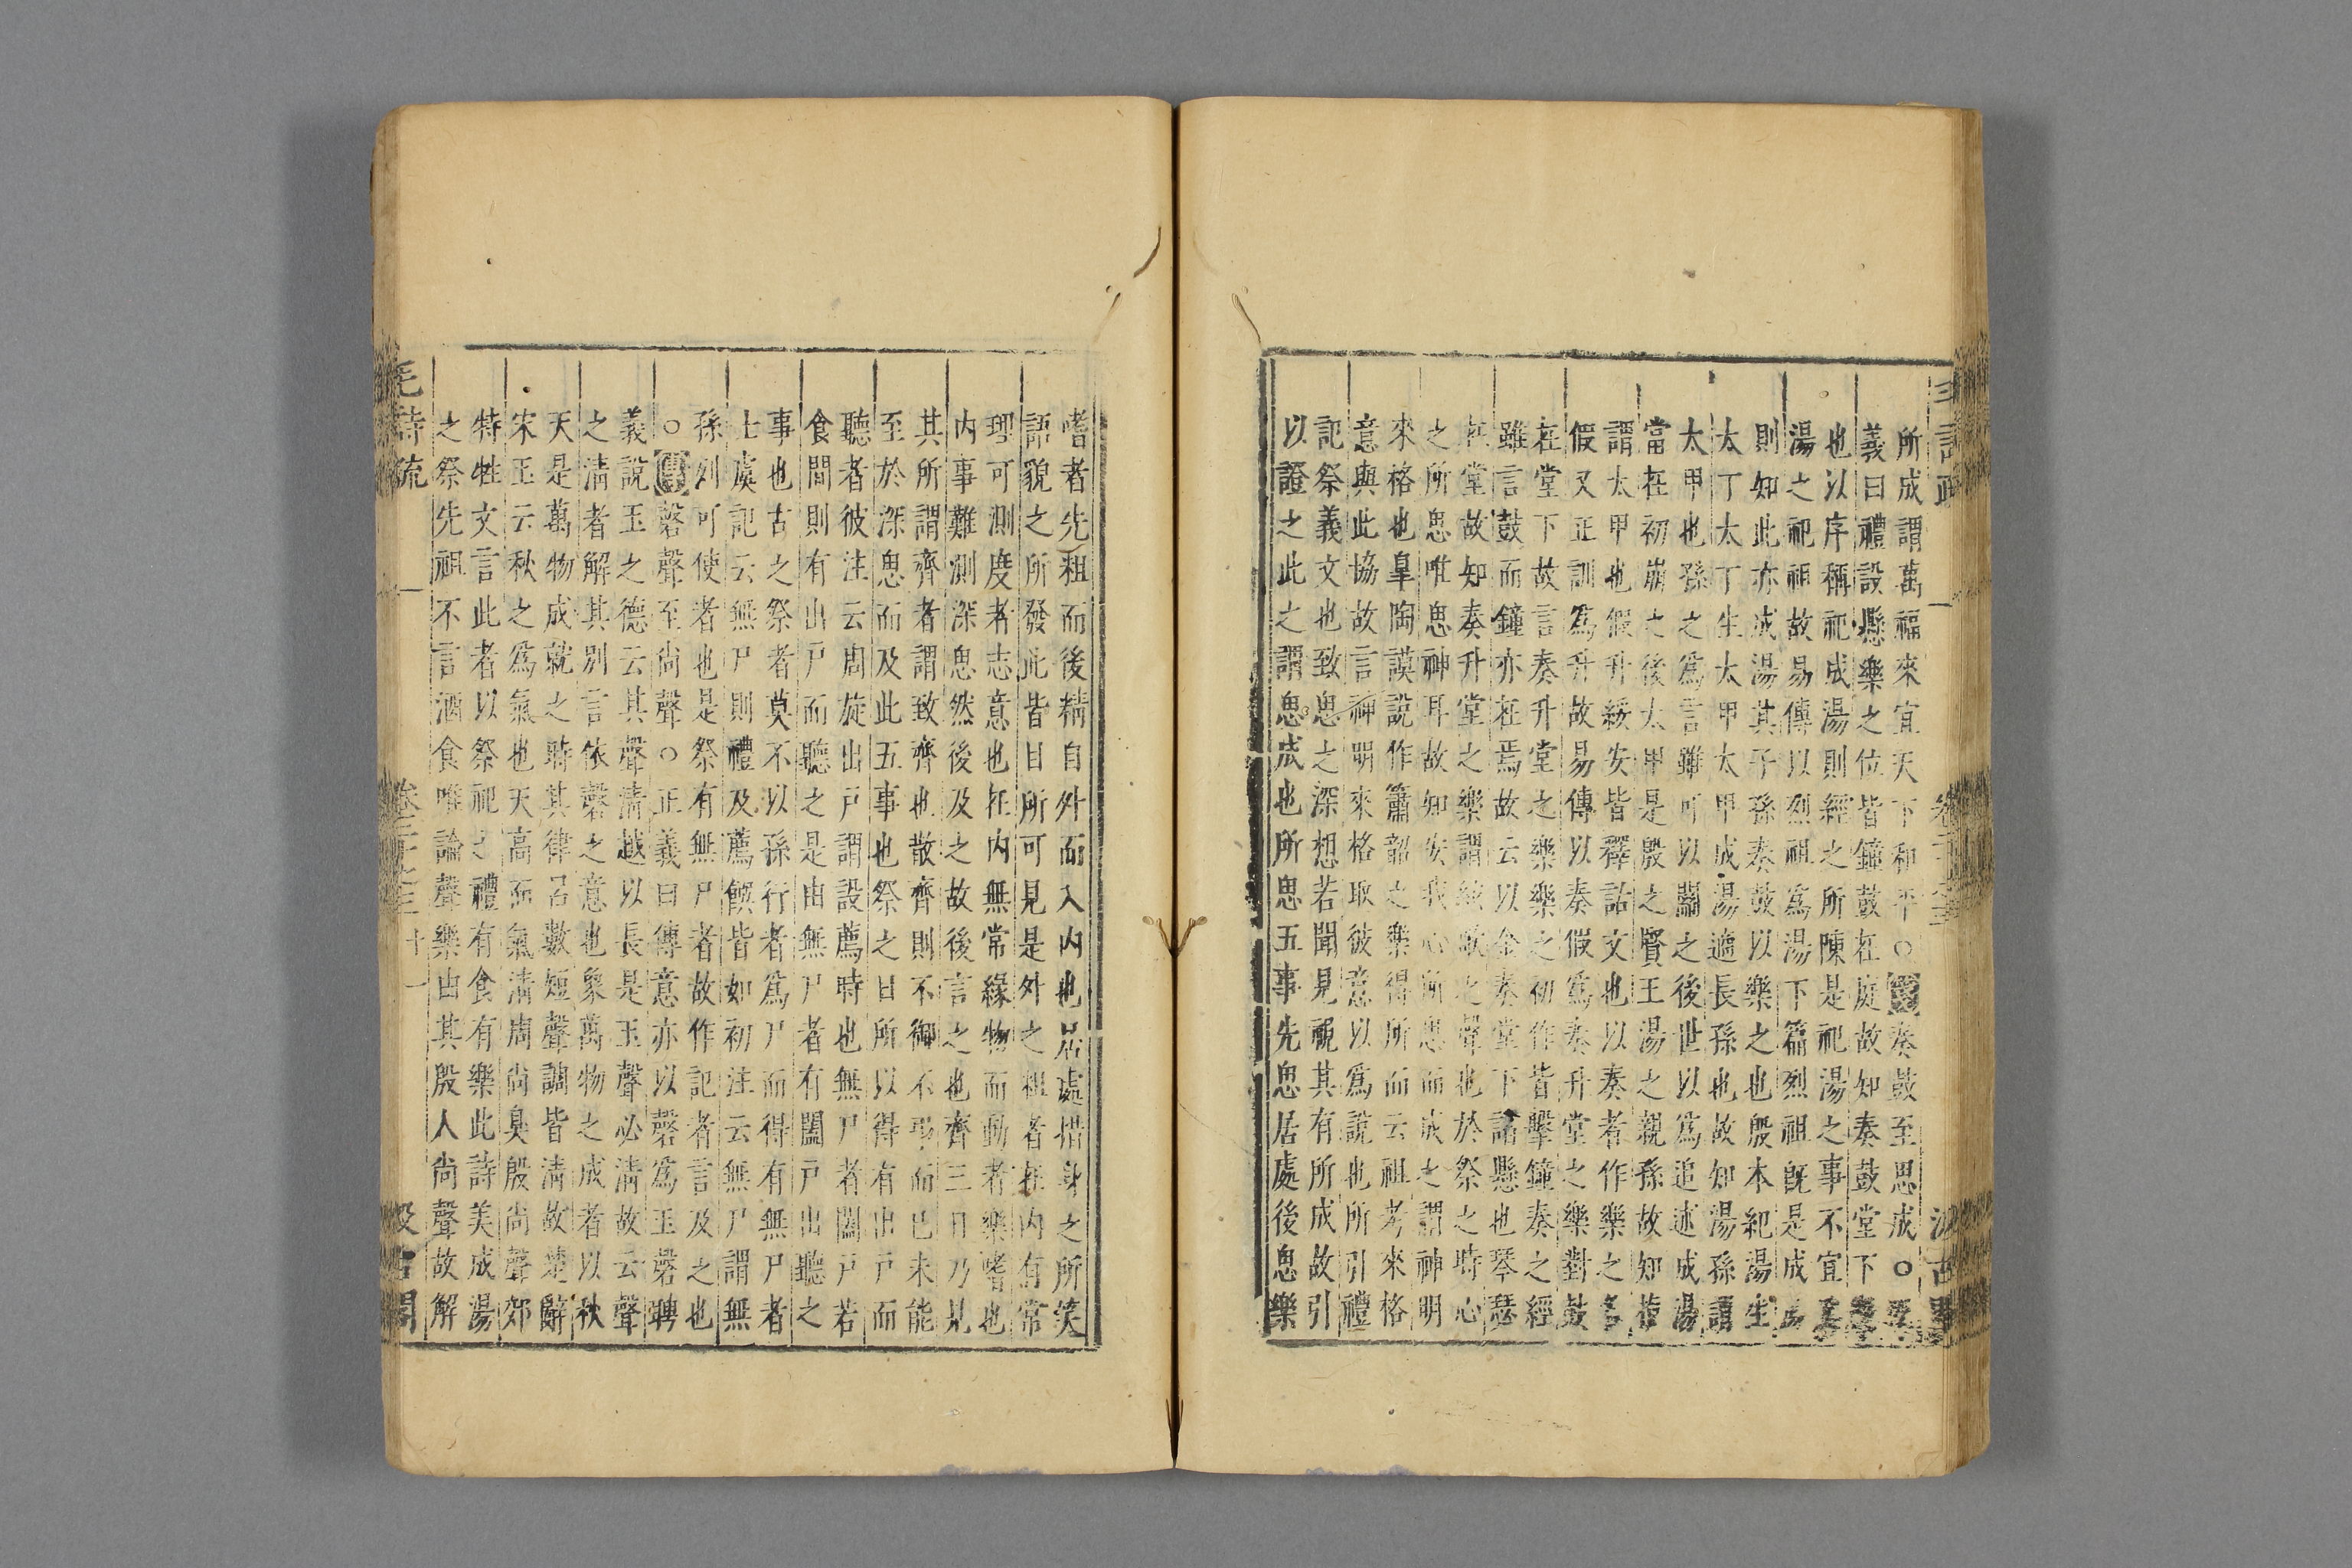 所成謂萬福來宜天下和平○箋奏鼓至思成○正
義曰禮設懸樂之位皆鐘鼓在庭故知奏鼓堂下
也以序稱祀成湯則經之所陳是祀湯之事不宜
湯之祀祖故易傳以烈祖爲湯下篇烈祖旣是成
則知此亦成湯其子孫奏鼓以樂之也殷本紀湯生
太丁太丁生太甲太甲成湯適長孫也故知湯孫謂
太甲也孫之爲言雖可以關之後世以爲追述成湯
當在初崩之後太甲是殷之賢王湯之親孫故知
謂太甲也假升綏安皆釋詁文也以奏者作樂之
假又正訓爲升故易傳以奏假爲奏升堂之樂對鼓
在堂下故言奏升堂之樂樂之初作皆擊鐘奏之經
雖言鼓而鐘亦在焉故云以金奏堂下諸懸也琴瑟
在堂故知奏升堂之樂謂絃歌之聲也於祭之時心
之所思唯思神耳故知安我心所思而成之謂神明
來格也皐陶謨說作簫韶之樂得所而云祖考來格
意與此協故言神明來格取彼意以爲說也所引禮
記祭義文也致思之深想若聞見覩其有所成故引
以證之此之謂思成也所思五事先思居處後思樂
嗜者先粗而後精自外而入內也居處措身之所笑
語貌之所發此皆目所可見是外之粗者在內有常
理可測度者志意也在內無常緣物而動者樂嗜也
內事難測深思然後及之故後言之也齊三日乃見
其所謂齊者謂致齊也散齊則不御不樂而已未能
至於深思而及此五事也祭之日所以得有出戶而
聽者彼注云周旋出戶謂設薦時也無尸者闔戶若
食間則有出戶而聽之是由無尸者有闔戶出聽之
事也古之祭者莫不以孫行者爲尸而得有無尸者
士虞記云無尸則禮及薦饌皆如初注云無尸謂無
孫列可使者也是祭有無尸者故作記者言及之也
○傳磬聲至尚聲○正義曰傳意亦以磬爲玉磬聘
義說玉之德云其聲清越以長是玉聲必清故云聲
之清者解其別言依磬之意也象萬物之成者以秋
天是萬物成就之時其律呂數短聲調皆清故楚辭
宋玉云秋之爲氣也天高而氣清周尚臭殷尚聲郊
特牲文言此者以祭祀之禮有食有樂此詩美成湯
之祭先祖不言酒食唯論聲樂由其殷人尚聲故解
毛詩疏
卷二十之三
十一
汲古閣